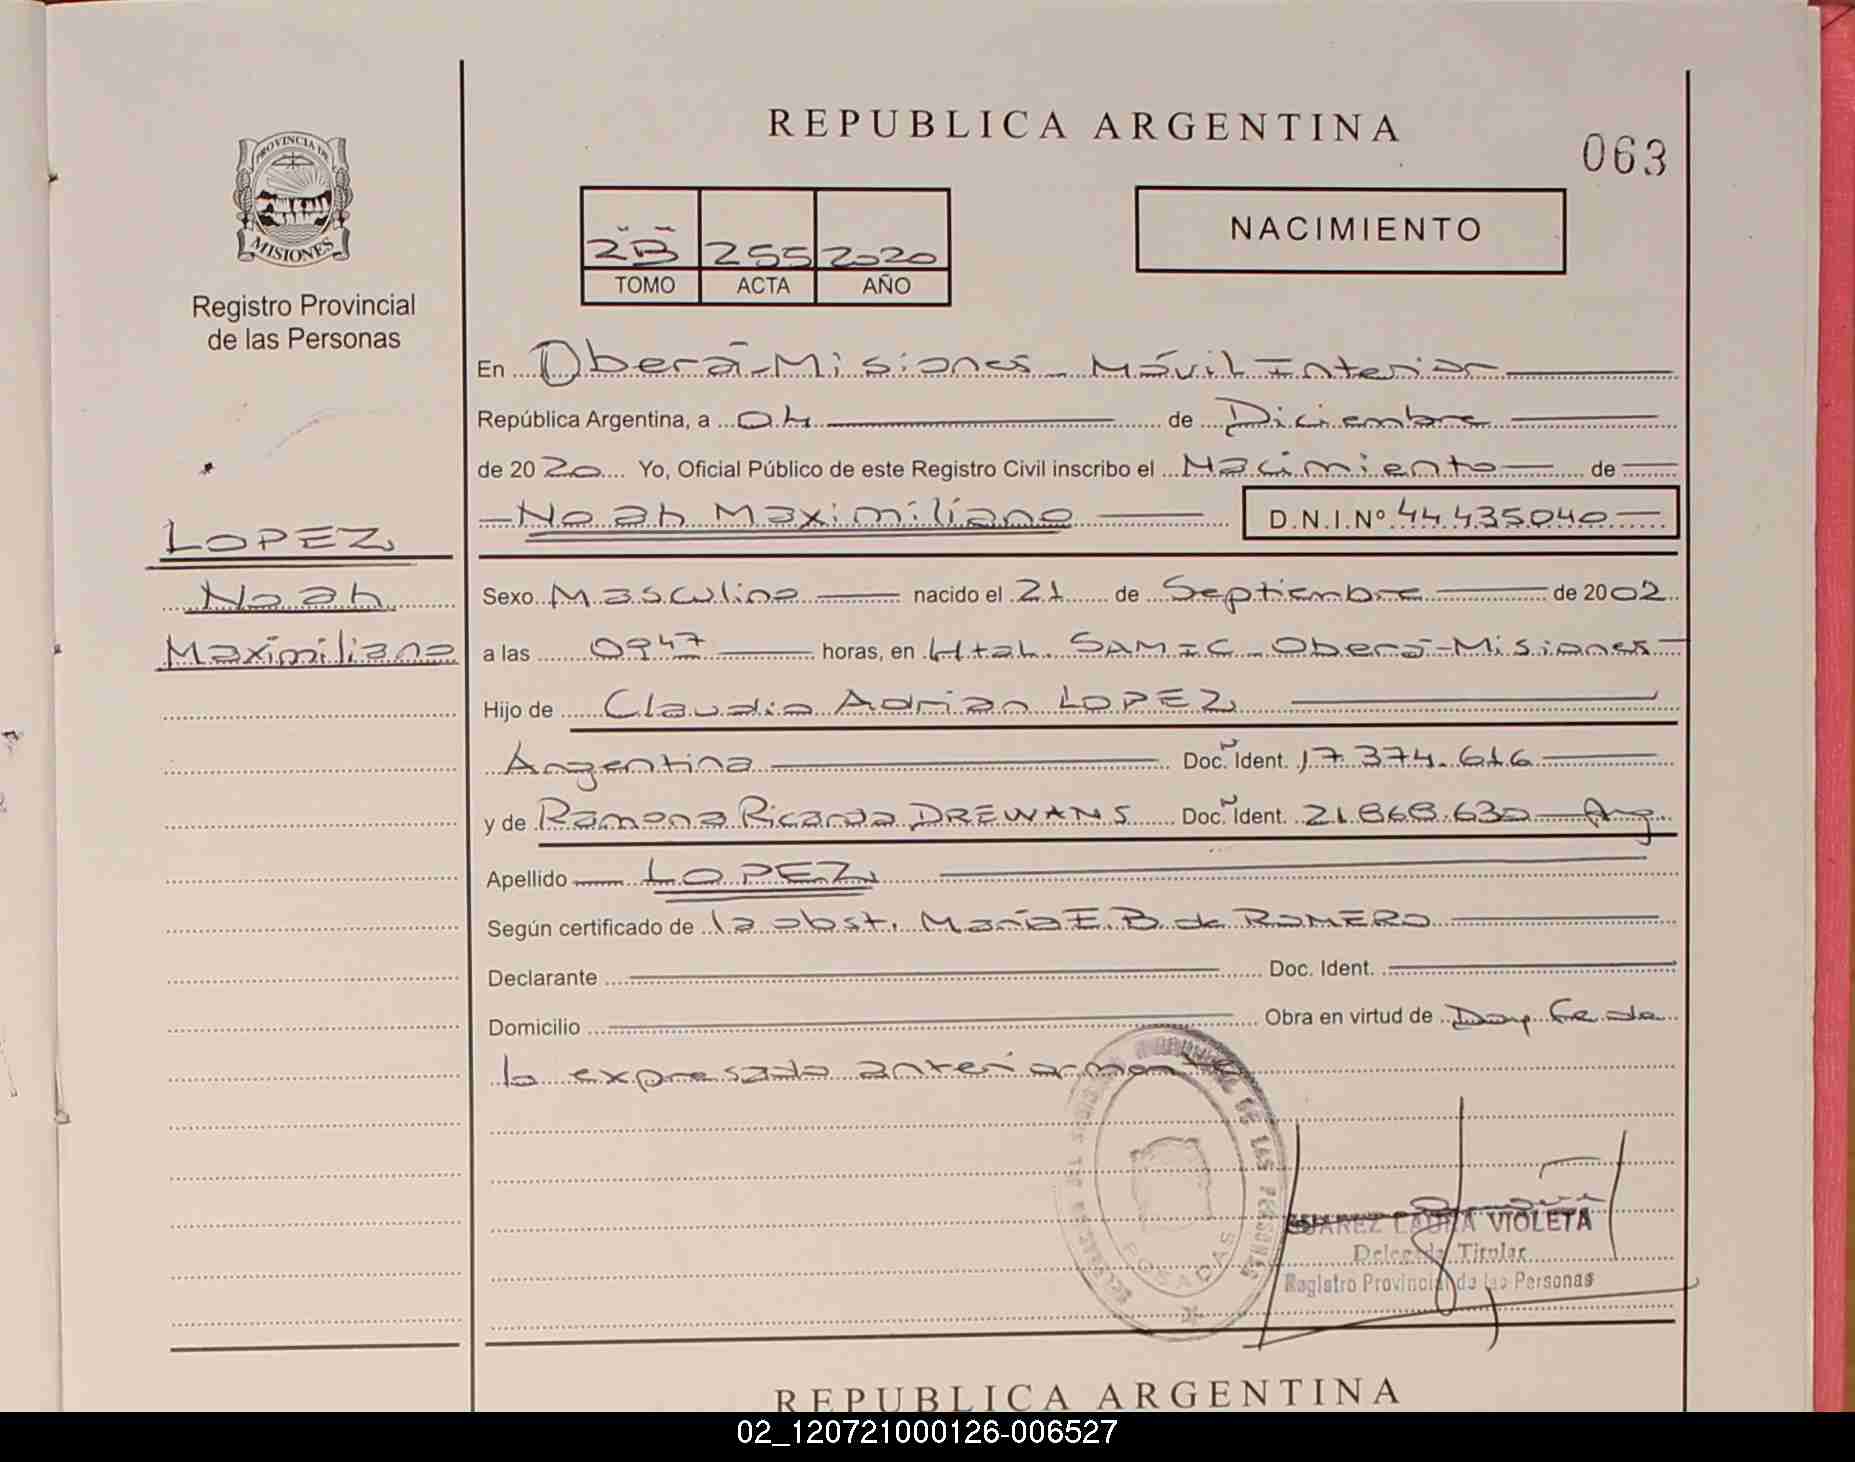 REPUBLICA ARGENTINA
063
PROVINCIA DE
MISIONES
Registro Provincial
de las Personas
2B 255 2020
TOMO ACTA AÑO
NACIMIENTO
En Oberá-Misiones - Móvil Interior
República Argentina, a 04 de Diciembre
de 2020 Yo, Oficial Público de este Registro Civil inscribo el Nacimiento de
Noah Maximiliano D.N.I.Nº 44.435040
LOPEZ
Noah
Maximiliano
Sexo Masculino nacido el 21 de Septiembre de 2002
a las 0947 horas, en Htal. SAMIC - Oberá-Misiones
Hijo de Claudio Adrian LOPEZ
Argentina Doc. Ident. 17.374.616
y de Ramona Ricarda DREWANS Doc. Ident. 21.868.630 Arg.
Apellido LOPEZ
Según certificado de la obst. María E. B. de ROMERO
Declarante Doc. Ident.
Domicilio Obra en virtud de Doy Fe de
lo expresado anteriormente
DE LAS PERSONAS
POSADAS
SUAREZ LAURA VIOLETA
Delegada Titular
Registro Provincial de las Personas
REPUBLICA ARGENTINA
02_120721000126-006527